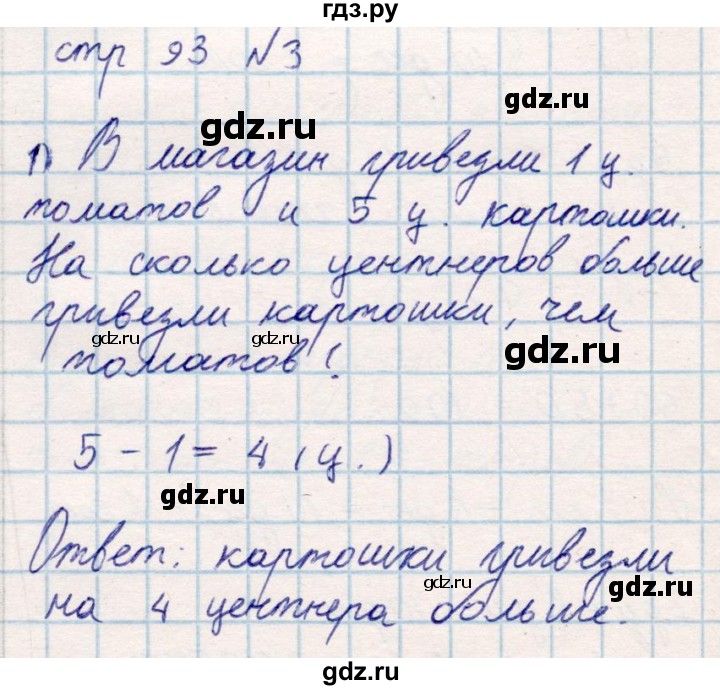 гдз.ру
стр 93 №3
gdz.ru
1) В магазин привезли 1 ц.
томатов и 5 ц. картошки.
gdz.ru
На сколько центнеров больше
привезли картошки, чем
gdz.ru
gdz.ru
gdz.ru
томатов?
5 - 1 = 4 (ц.)
gdz.ru
Ответ: картошки привезли
gdz.ru
gdz.ru
на 4 центнера больше.
gdz.ru